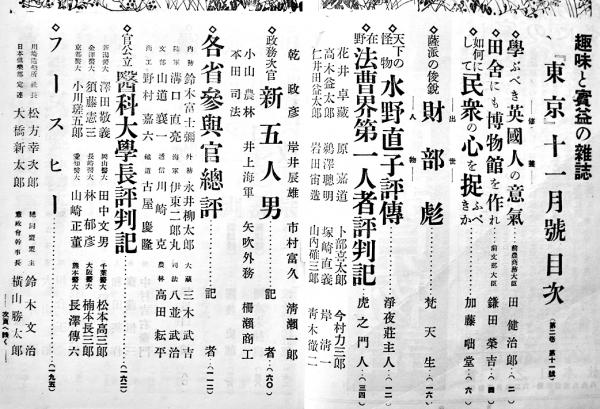 趣味と實益の雜誌
『東京』十一月號目次（第二卷 第十一號）
修養
◇學ぶべき英國人の意氣…前農商務大臣 田健治郎…（二）
◇田舍にも博物館を作れ…前文部大臣 鎌田榮吉…（四）
◇如何にして民衆の心を捉ふべきか…加藤咄堂…（六）
出世
人物
薩派の俊銳 財部彪…梵天生…（一六）
天下の怪物 水野直子評傳…淨夜莊主人…（一二）
在野 法曹界第一人者評判記…虎之門人…（三四）
花井卓藏 原嘉道 卜部喜太郎 今村力三郎
高木益太郎 鵜澤聰明 塚崎直義 岸清一
仁井田益太郎 岩田宙造 山內確三郎 青木徹二
乾政彥 岸井辰雄 市村富久 清瀨一郎
◇政務次官 新五人男…記者…（六〇）
小山農林 井上海軍 矢吹外務 櫻瀨商工
本田司法
◇各省參與官總評…記者…（一一二）
內務 鈴木富士彌 外務 永井柳太郎 大藏 三木武吉
陸軍 溝口直亮 海軍 伊東二郎丸 司法 八並武治
文部 山道襄一 遞信 川崎克 農林 高田耘平
商工 野村嘉六 鐵道 古屋慶隆
◇官公立 醫科大學長評判記…（一六二）
新潟醫大 澤田敬義 岡山醫大 田中文男 千葉醫大 松本高三郎
金澤醫大 須藤憲三 長崎醫大 林郁彥 大阪醫大 楠本長三郎
京都醫大 小川瑳五郎 愛知醫大 山崎正董 熊本醫大 長澤傳六
◇フースヒー…（一九五）
川崎造船所社長 松方幸次郎 總同盟盟主 鈴木文治
日本俱樂部定連 大橋新太郎 憲政會幹事長 橫山勝太郎
次頁へ續く